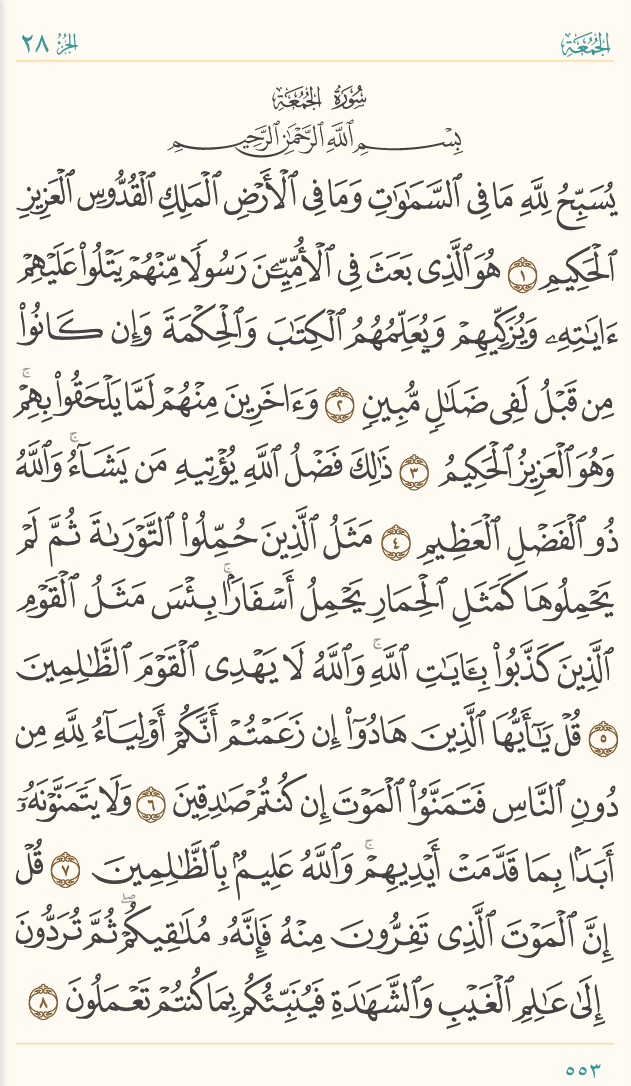 الجُمُعَة
الجزء ٢٨
سُورَةُ الجُمُعَة
بِسْمِ ٱللَّهِ ٱلرَّحْمَٰنِ ٱلرَّحِيمِ
يُسَبِّحُ لِلَّهِ مَا فِى ٱلسَّمَٰوَٰتِ وَمَا فِى ٱلْأَرْضِ ٱلْمَلِكِ ٱلْقُدُّوسِ ٱلْعَزِيزِ
ٱلْحَكِيمِ ١ هُوَ ٱلَّذِى بَعَثَ فِى ٱلْأُمِّيِّـۧنَ رَسُولًا مِّنْهُمْ يَتْلُوا۟ عَلَيْهِمْ
ءَايَٰتِهِۦ وَيُزَكِّيهِمْ وَيُعَلِّمُهُمُ ٱلْكِتَٰبَ وَٱلْحِكْمَةَ وَإِن كَانُوا۟
مِن قَبْلُ لَفِى ضَلَٰلٍ مُّبِينٍ ٢ وَءَاخَرِينَ مِنْهُمْ لَمَّا يَلْحَقُوا۟ بِهِمْ ۚ
وَهُوَ ٱلْعَزِيزُ ٱلْحَكِيمُ ٣ ذَٰلِكَ فَضْلُ ٱللَّهِ يُؤْتِيهِ مَن يَشَآءُ ۚ وَٱللَّهُ
ذُو ٱلْفَضْلِ ٱلْعَظِيمِ ٤ مَثَلُ ٱلَّذِينَ حُمِّلُوا۟ ٱلتَّوْرَىٰةَ ثُمَّ لَمْ
يَحْمِلُوهَا كَمَثَلِ ٱلْحِمَارِ يَحْمِلُ أَسْفَارًۢا ۚ بِئْسَ مَثَلُ ٱلْقَوْمِ
ٱلَّذِينَ كَذَّبُوا۟ بِـَٔايَٰتِ ٱللَّهِ ۚ وَٱللَّهُ لَا يَهْدِى ٱلْقَوْمَ ٱلظَّٰلِمِينَ
٥ قُلْ يَٰٓأَيُّهَا ٱلَّذِينَ هَادُوٓا۟ إِن زَعَمْتُمْ أَنَّكُمْ أَوْلِيَآءُ لِلَّهِ مِن
دُونِ ٱلنَّاسِ فَتَمَنَّوُا۟ ٱلْمَوْتَ إِن كُنتُمْ صَٰدِقِينَ ٦ وَلَا يَتَمَنَّوْنَهُۥٓ
أَبَدًۢا بِمَا قَدَّمَتْ أَيْدِيهِمْ ۚ وَٱللَّهُ عَلِيمٌۢ بِٱلظَّٰلِمِينَ ٧ قُلْ
إِنَّ ٱلْمَوْتَ ٱلَّذِى تَفِرُّونَ مِنْهُ فَإِنَّهُۥ مُلَٰقِيكُمْ ۖ ثُمَّ تُرَدُّونَ
إِلَىٰ عَٰلِمِ ٱلْغَيْبِ وَٱلشَّهَٰدَةِ فَيُنَبِّئُكُم بِمَا كُنتُمْ تَعْمَلُونَ ٨
٥٥٣